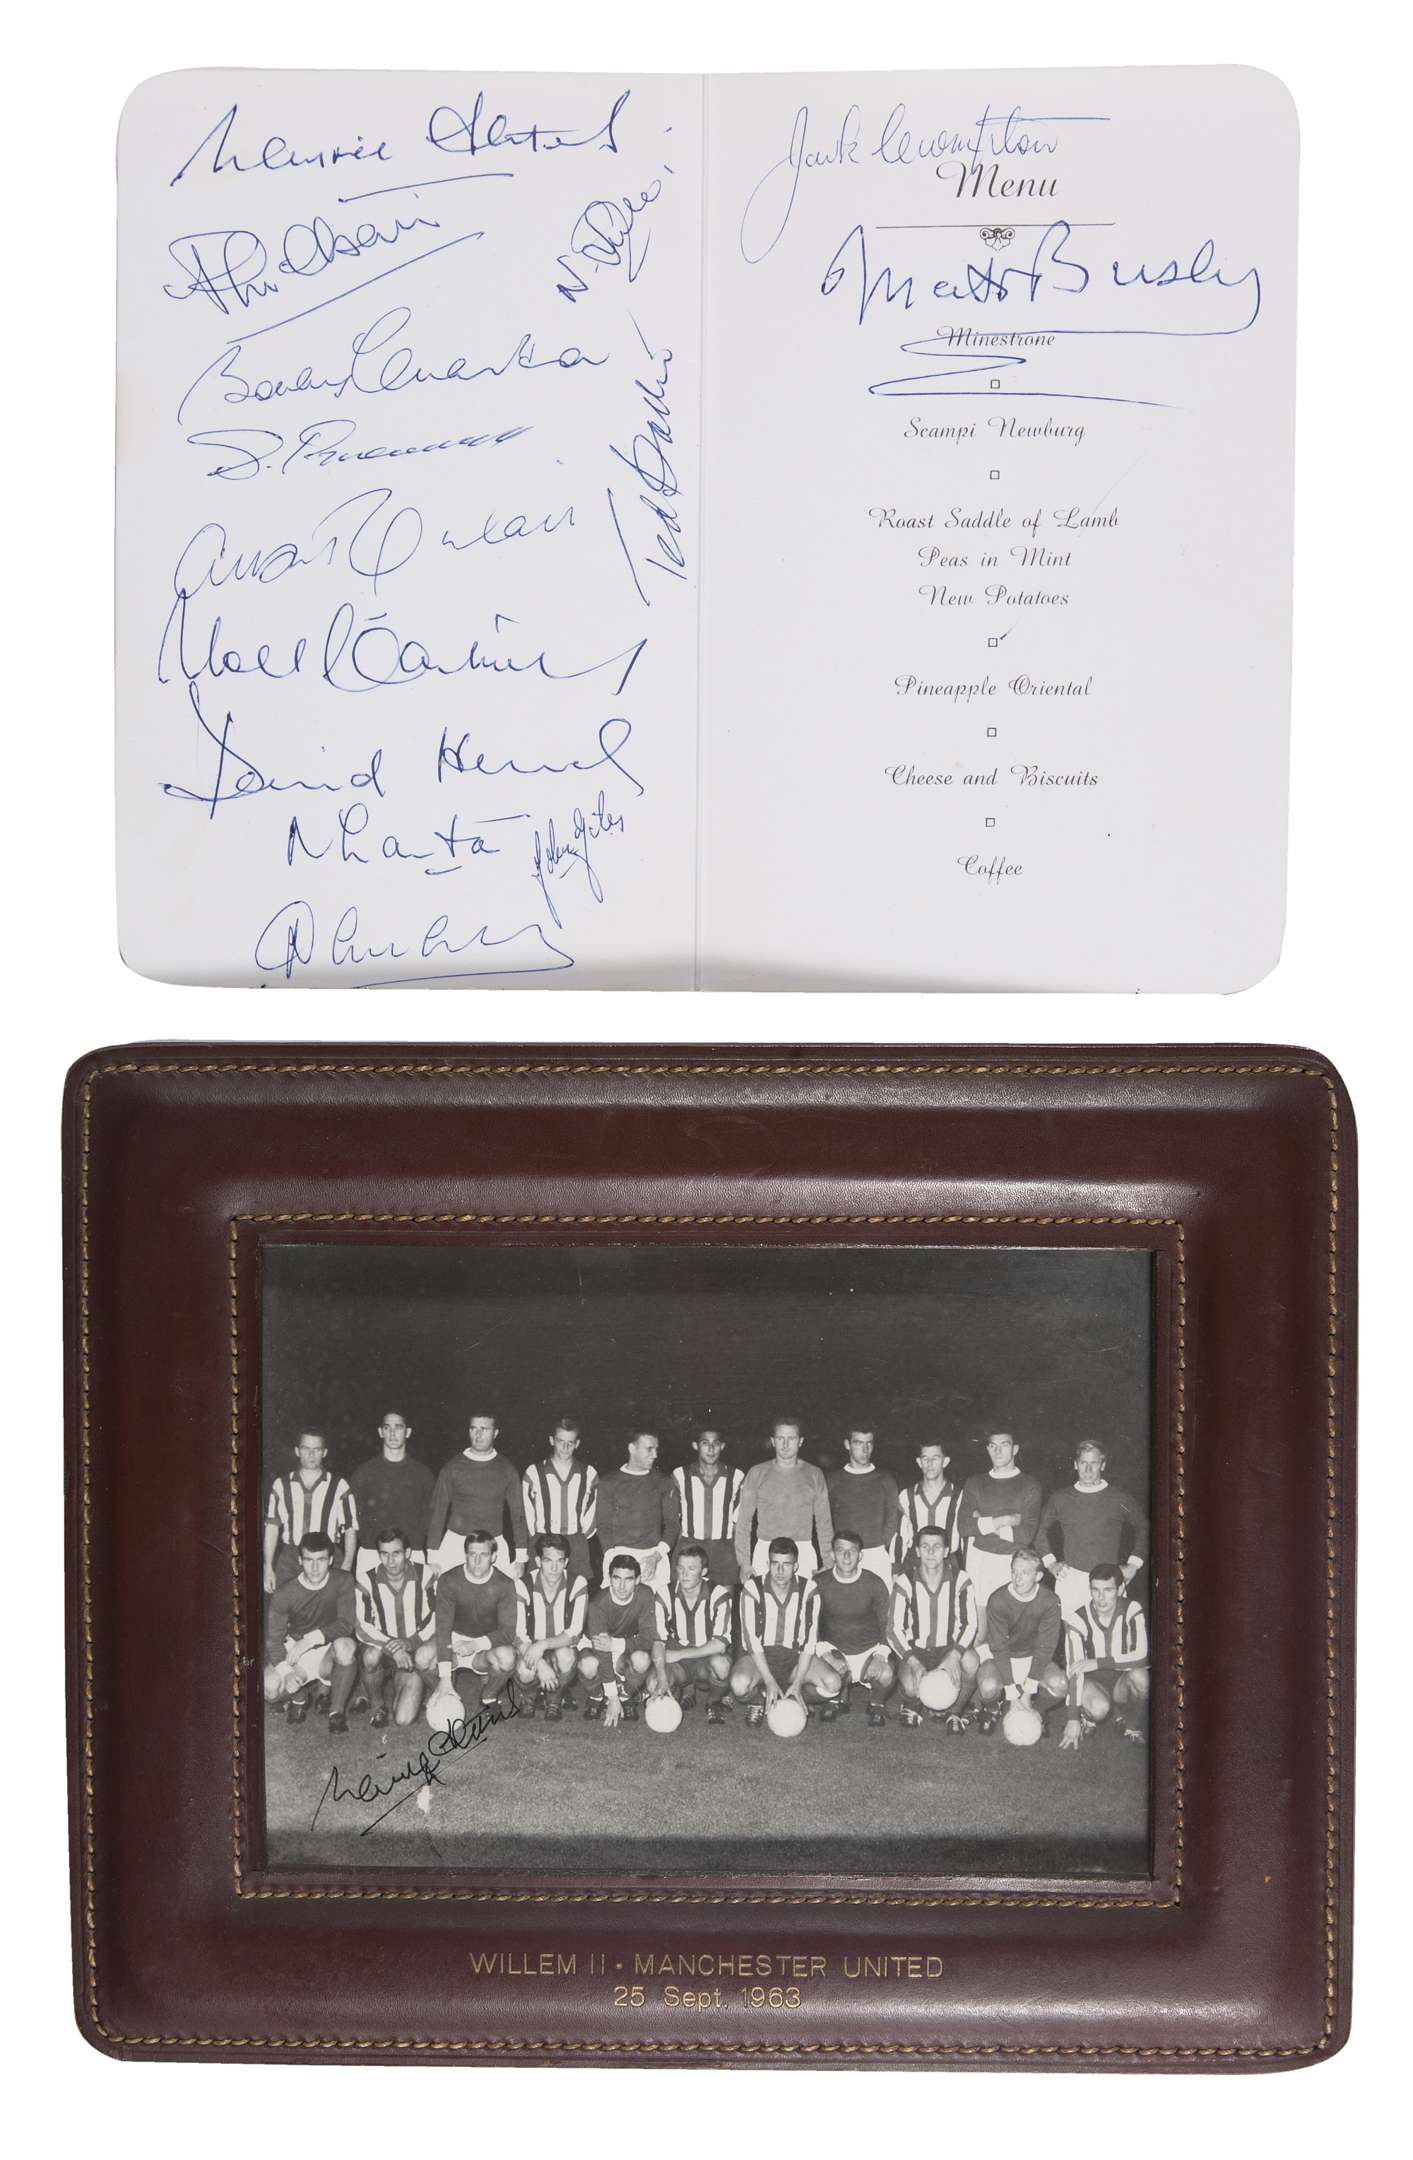 Maurice Setters
N. Stiles
Bobby Charlton
Ted Dalton
Noel Cantwell
David Herd
John Giles
Jack Crompton
Menu
Matt Busby
Minestrone
Scampi Newburg
Roast Saddle of Lamb
Peas in Mint
New Potatoes
Pineapple Oriental
Cheese and Biscuits
Coffee
Maurice Setters
WILLEM II - MANCHESTER UNITED
25 Sept. 1963